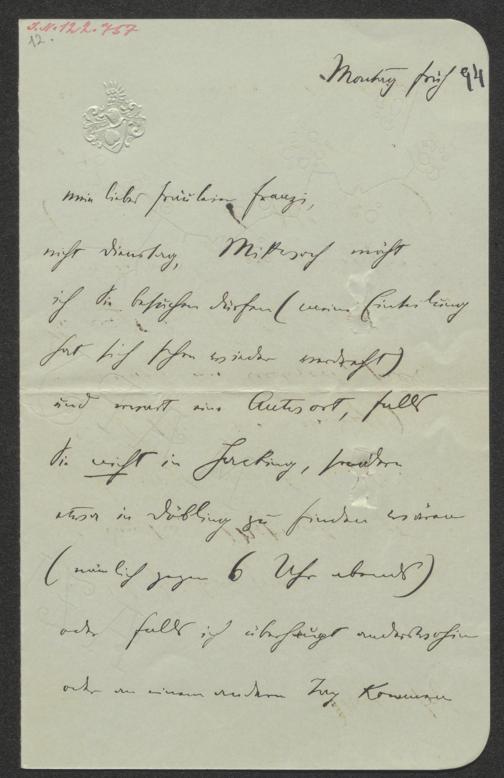 I.N. 122.757
12.
Montag früh 94
mein lieber Fräulein Franzi,
nicht Dienstag, Mittwoch möcht
ich Sie besuchen dürfen (meine Einteilung
hat sich schon wieder verdreht)
und erwart eine Antwort, falls
Sie nicht in Hacking, sondern
etwa in Döbling zu finden wären
(nämlich gegen 6 Uhr abends)
oder falls ich überhaupt anderswohin
oder an einem andern Tag kommen